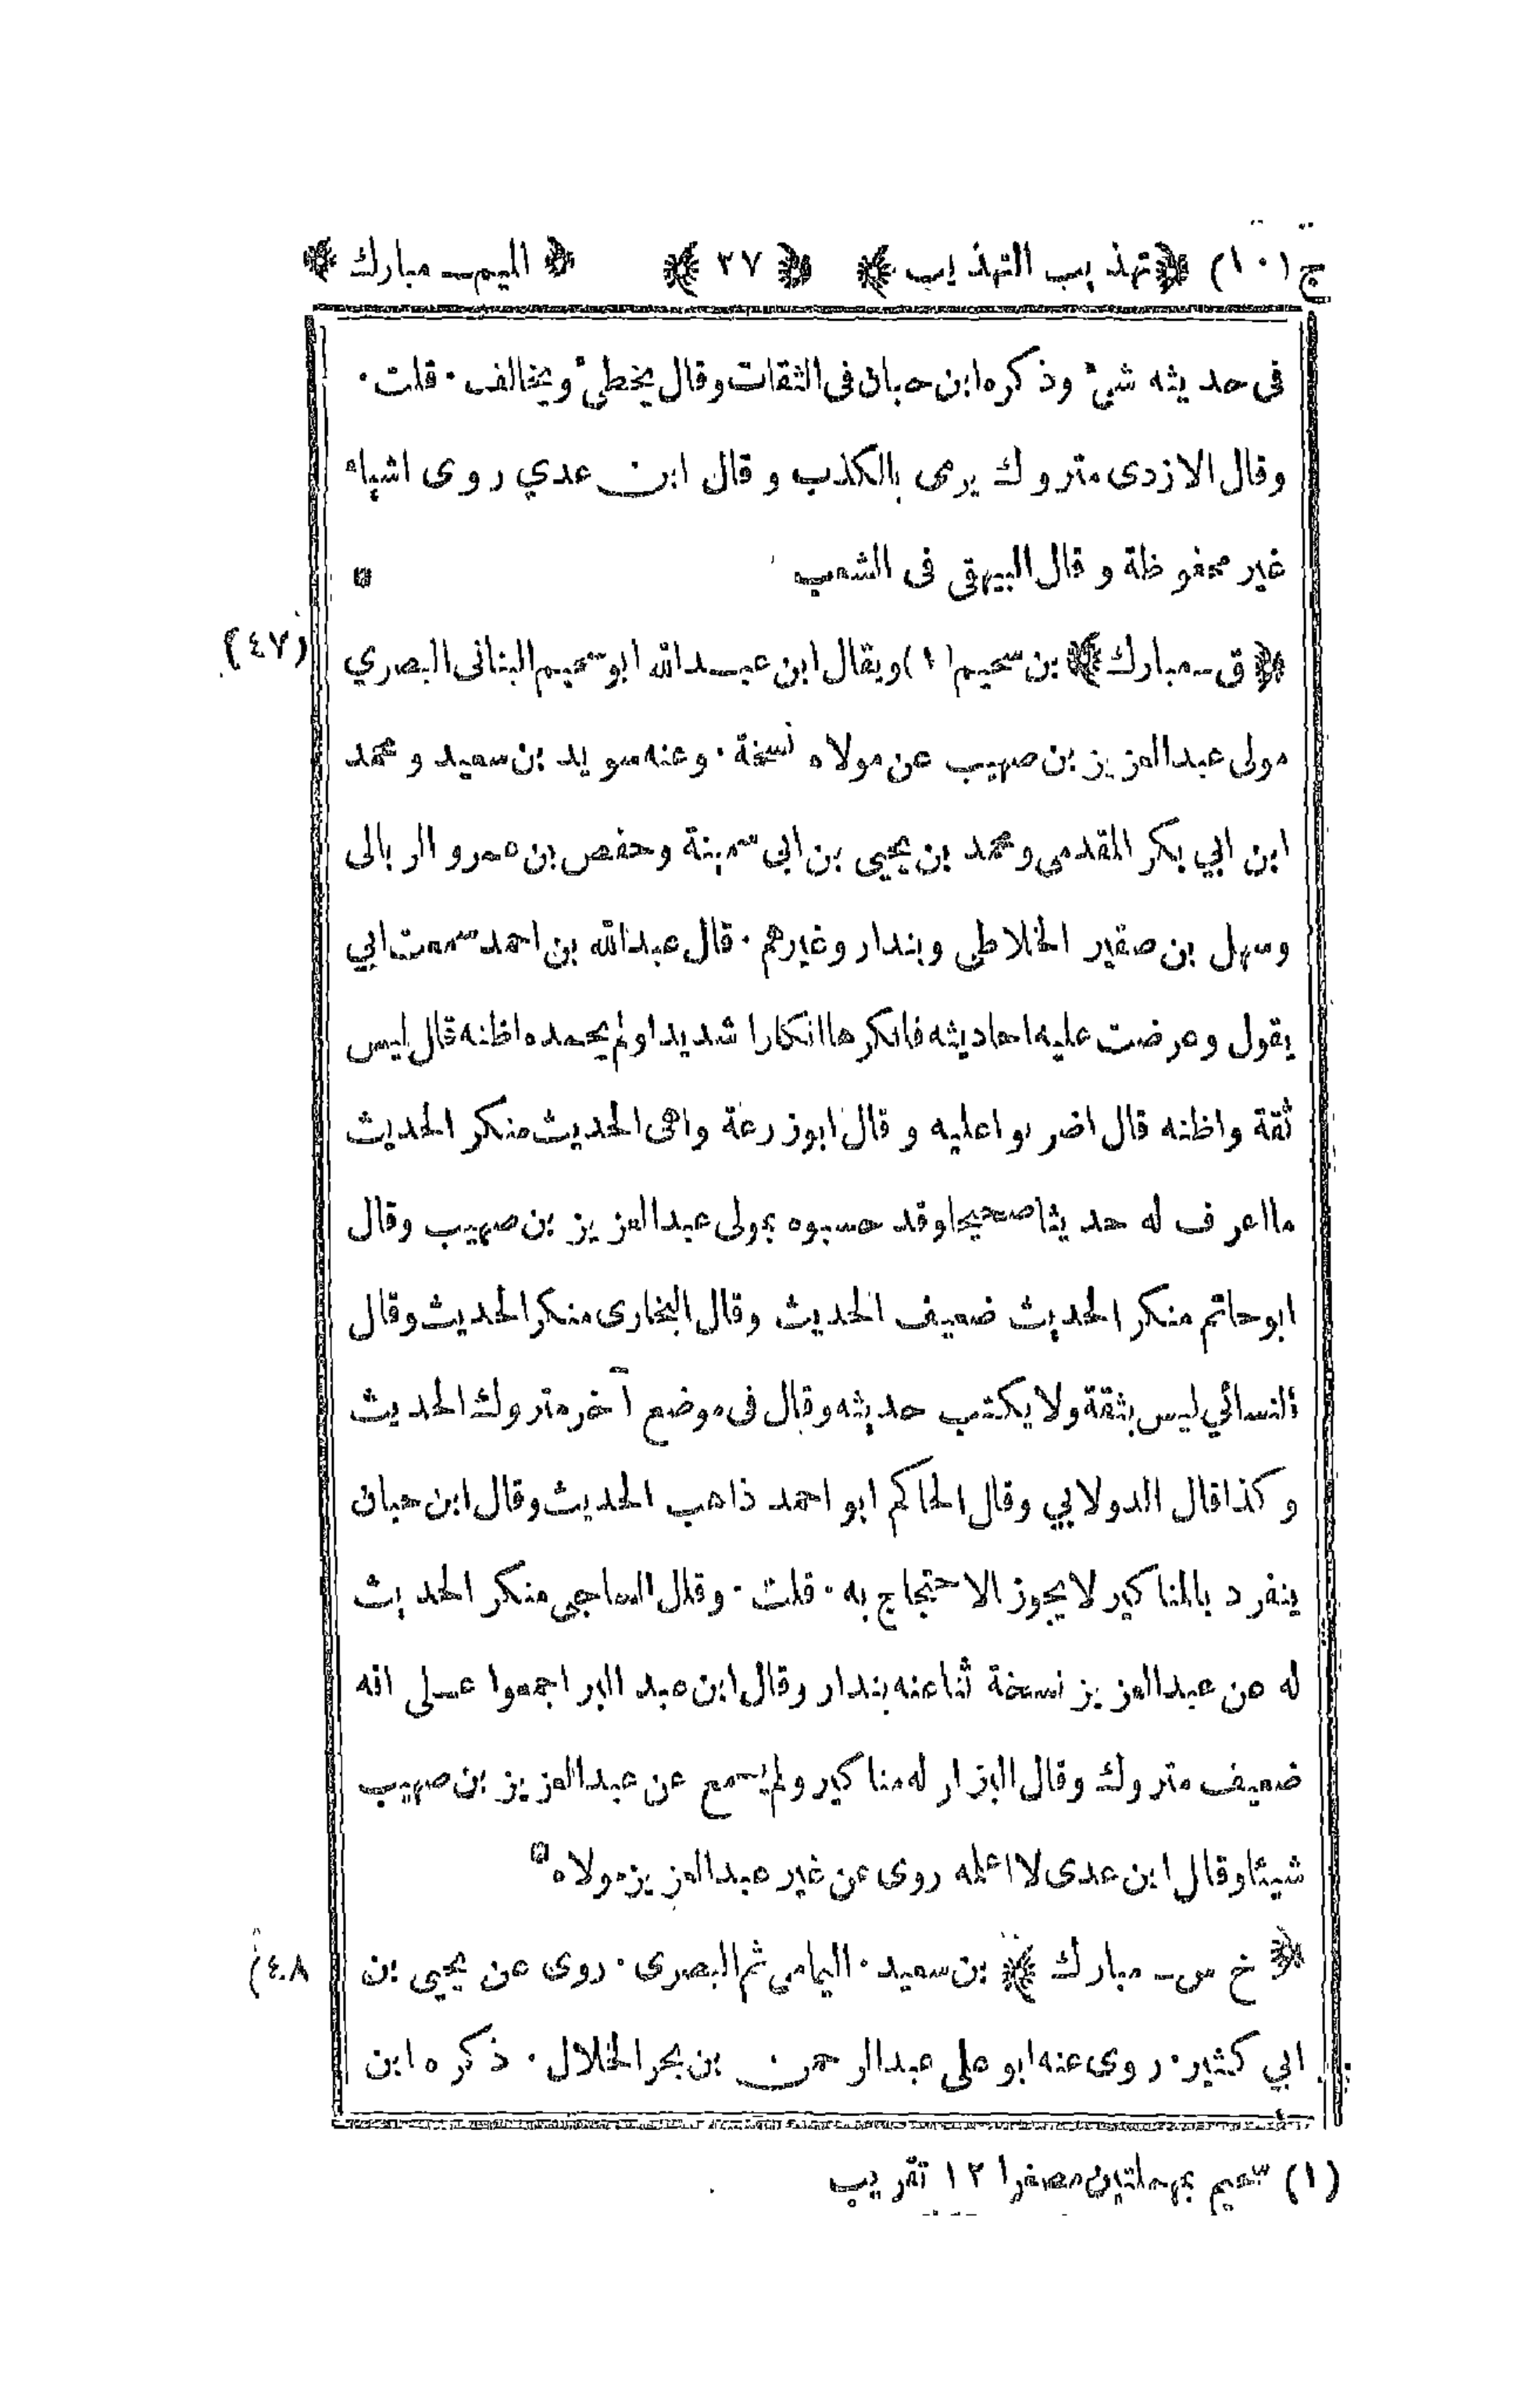 ج (١٠) ﴿ تهذيب التهذيب ﴾ ﴿ ٢٧ ﴾ ﴿ الميم ــ مبارك ﴾
فى حديثه شئ وذكره ابن حبان فى الثقات وقال يخطئ ويخالف · قلت ·
وقال الازدى متروك يرمى بالكذب وقال ابن عدي روى اشياء
غير محفوظة وقال البيهقى فى الشعب *
(٤٧) ﴿ ق ــ مبارك ﴾ بن سحيم (١) ويقال ابن عبدالله ابو سحيم البنانى البصري
مولى عبدالعزيز بن صهيب عن مولاه نسخة · وعنه سويد بن سعيد ومحمد
ابن ابي بكر المقدمى ومحمد بن يحيى بن ابى سمينة وحفص بن عمرو الربالى
وسهل بن صقير الخلاطى وبندار وغيرهم · قال عبدالله بن احمد سمعت ابي
يقول وعرضت عليه احاديثه فانكرها انكارا شديدا ولم يحمده اظنه قال ليس
ثقة واظنه قال اضربوا عليه وقال ابو زرعة واهى الحديث منكر الحديث
ما اعرف له حديثا صحيحا وقد حسبوه بمولى عبدالعزيز بن صهيب وقال
ابو حاتم منكر الحديث ضعيف الحديث وقال البخارى منكر الحديث وقال
النسائي ليس بثقة ولا يكتب حديثه وقال فى موضع آخر متروك الحديث
وكذا قال الدولابي وقال الحاكم ابو احمد ذاهب الحديث وقال ابن حبان
ينفرد بالمناكير لا يجوز الاحتجاج به · قلت · وقال الساجى منكر الحديث
له عن عبدالعزيز نسخة ثنا عنه بندار وقال ابن عبد البر اجمعوا على انه
ضعيف متروك وقال البزار له مناكير ولم يسمع عن عبدالعزيز بن صهيب
شيئا وقال ابن عدى لا اعلمه روى عن غير عبدالعزيز مولاه *
(٤٨) ﴿ خ س ــ مبارك ﴾ بن سعيد · اليمامى ثم البصرى · روى عن يحيى بن
ابي كثير · روى عنه ابو على عبدالرحمن بن بحر الخلال · ذكره ابن
(١) سحيم بمهملتين مصغرا ١٢ تقريب